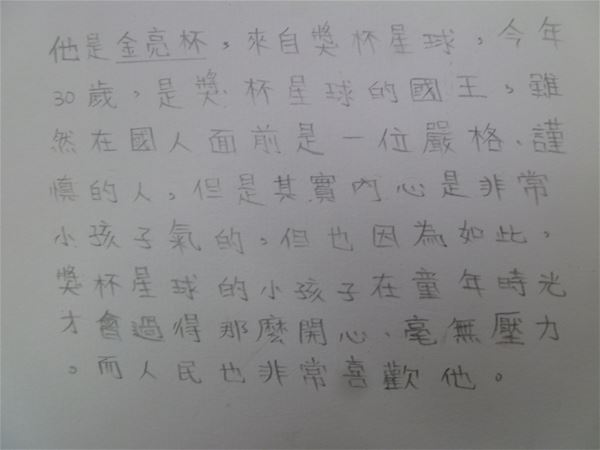 他是金亮杯，來自獎杯星球，今年
30歲，是獎杯星球的國王，雖
然在國人面前是一位嚴格、謹
慎的人，但是其實內心是非常
小孩子氣的，但也因為如此，
獎杯星球的小孩子在童年時光
才會過得那麼開心、毫無壓力
。而人民也非常喜歡他。